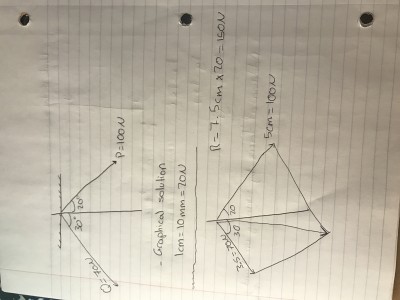 30° 20°
P=100N
Q=70N
- Graphical solution
1cm=10mm=20N
R=7.5cm x 20=150N
30 20
3.5=70N
5cm=100N